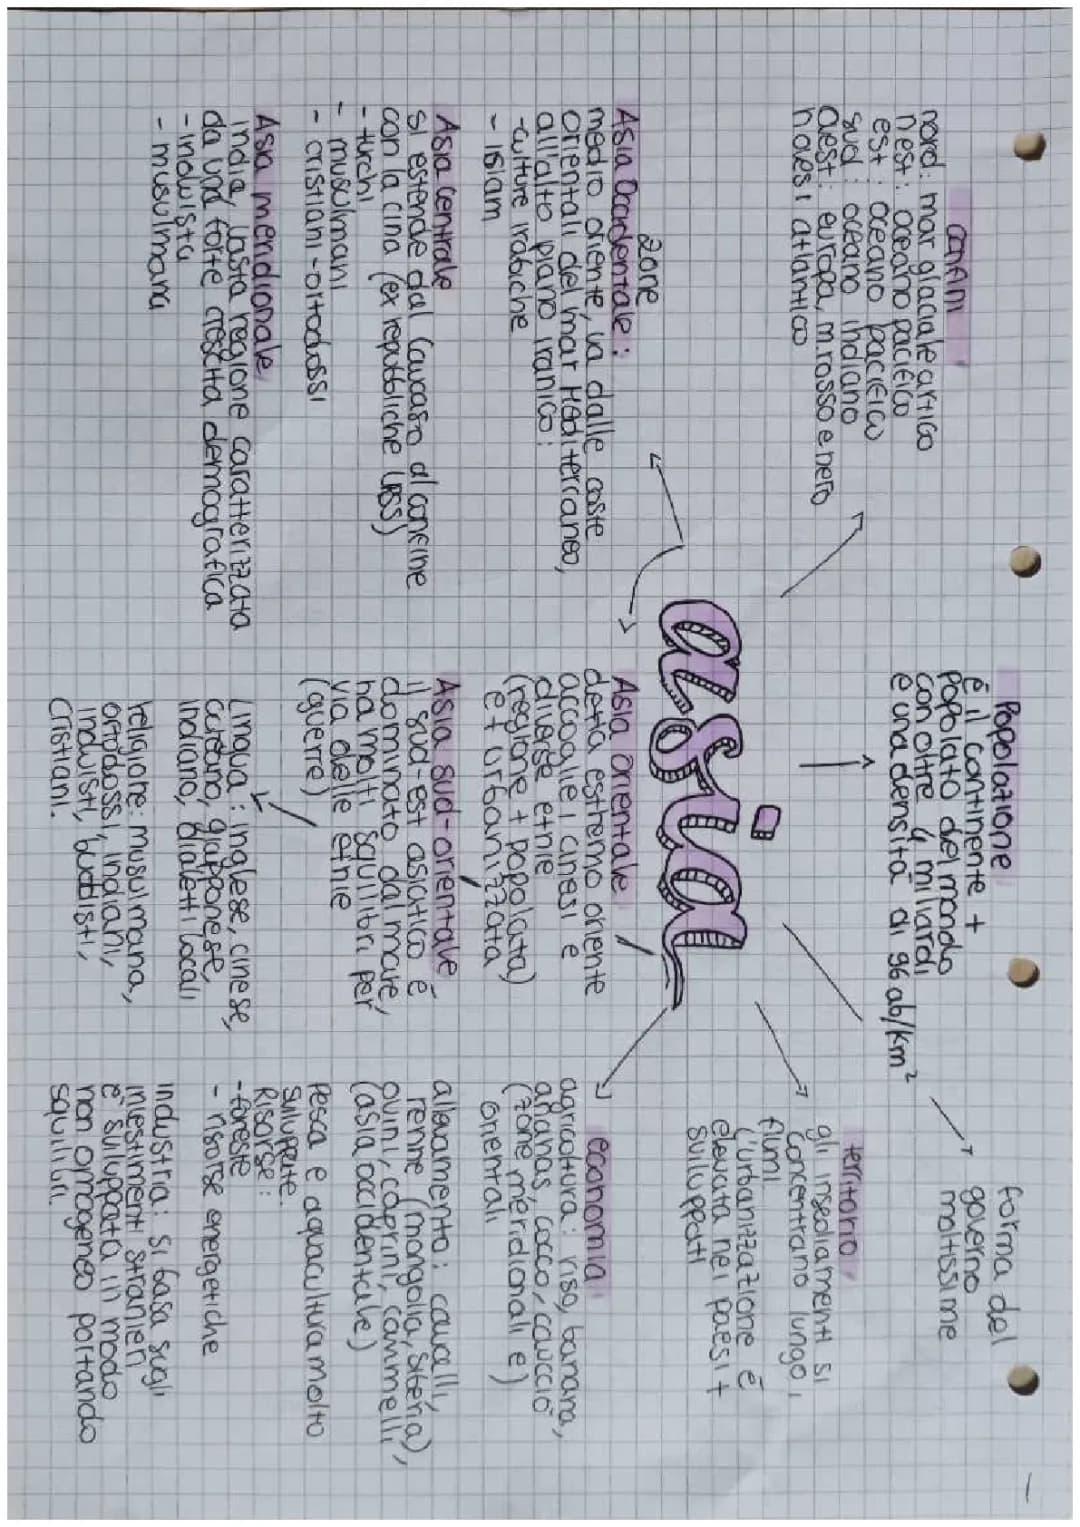 confini
nord: mar glaciale artico
nest: oceano pacifico
est: oceano pacifico
sud: oceano indiano
ovest: europa, m.rosso e nero
novest atlantico
Popolazione
é il continente +
popolato del mondo
con oltre 4 miliardi
e una densità di 96 ab/km²
forma del
governo
moltissime
territorio
gli insediamenti si
concentrano lungo i
fiumi
L'urbanizzazione é
elevata nei paesi +
sviluppati
asia
zone
Asia Occidentale:
medio oriente, va dalle coste
orientali del mar Mediterraneo,
all'alto piano iranico:
-culture
- islam
Asia Centrale
si estende dal Caucaso al confine
con la cina (ex repubbliche URSS)
- turchi
- musulmani
- cristiani-ortodossi
Asia meridionale
india, vasta regione caratterizzata
da una forte crescita demografica
- induista
- musulmana
Asia orientale
detta estremo oriente
accoglie i cinesi e
diverse etnie
(regione + popolata)
e + urbanizzata
Asia sud-orientale
il sud-est asiatico é
dominato dal mare,
ha molti squilibri per
via delle etnie
(guerre)
Lingua: inglese, cinese,
coreano, giapponese,
indiano, dialetti locali
religione: musulmana,
ortodossi, indiani,
induisti, buddisti,
cristiani.
economia
agricoltura: riso, banana,
ananas, cocco, caucciò
(zone meridionali e)
orientali
allevamento: cavalli,
renne (mongolia, siberia),
ovini, caprini, cammelli
(asia occidentale)
Pesca e aquacultura molto
sviluppate.
Risorse:
-foreste
- risorse energetiche
industria: si basa sugli
investimenti stranieri
é sviluppata in modo
non omogeneo portando
squilibri.